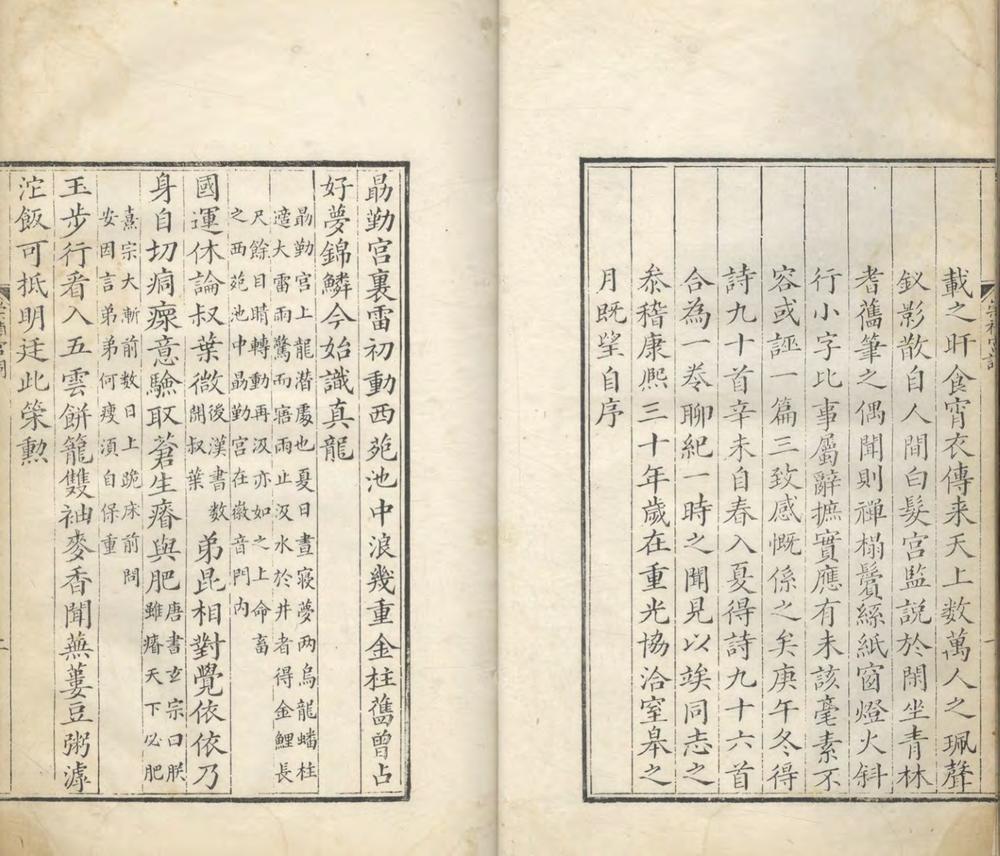 載之旰食宵衣傳来天上数萬人之珮聲
釵影散自人間白髮宮監說於閒坐青林
耆舊筆之偶聞則禪榻鬢絲紙窗燈火斜
行小字比事屬辭摭實應有未該毫素不
容或誣一篇三致感慨係之矣庚午冬得
詩九十首辛未自春入夏得詩九十六首
合為一卷聊紀一時之聞見以竢同志之
叅稽康熙三十年歲在重光協洽室皋之
月既望自序
勗勤宮裏雷初動西苑池中浪幾重金柱舊曾占
好夢錦鱗今始識真龍
勗勤宮上龍潛處也夏日晝寢夢兩烏龍蟠柱
適大雷雨驚而寤雨止汲水於井者得金鯉長
尺餘目睛轉動再汲亦如之上命畜
之西苑池中勗勤宮在徽音門内
國運休論叔葉微
後漢書数
開叔葉
弟昆相對覺依依乃
身自切痌瘝意驗取蒼生瘠與肥
唐書玄宗曰朕
雖瘠天下必肥
熹宗大漸前数日上跪床前問
安因言弟弟何瘦湏自保重
玉步行看入五雲餅籠雙袖麥香聞蕪蔞豆粥滹
沱飯可抵明廷此䇿勲